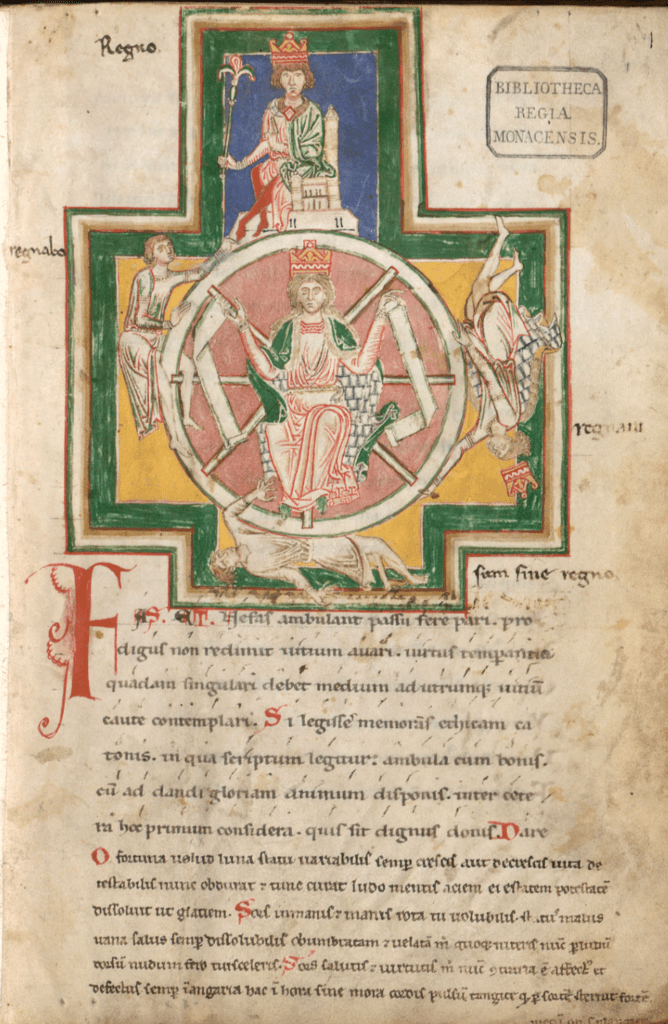 Regno
BIBLIOTHECA
REGIA
MONACENSIS.
regnabo
regnaui
sum sine regno
FAS. ET. Nefas ambulant passu fere pari. pro
digus non redimit uitium auari. uirtus temperantia
quadam singulari debet medium ad utrumq; uitiū
caute contemplari. Si legisse memoras ethicam ca
tonis. in qua scriptum legitur: ambula cum bonis.
cū ad dandi gloriam animum disponis. inter cete
ra hoc primum considera. quis sit dignus donis. Dare
O fortuna uelud luna statu uariabilis semp crescis aut decrescis uita de
testabilis nunc obdurat & tunc curat ludo mentis aciem egestatem potestatē
dissoluit ut glaciem. Sors inmanis & inanis rota tu uolubilis status malus
uana salus semp dissolubilis obumbratam & uelatam m quoq; niteris nūc p ludū
dorsū nudum fero tui sceleris. Sors salutis & uirtutis m nūc ē affect' et
defectus semp ī angaria hac ī hora sine mora cordis pulsū tangite q p sortē sternit fortē